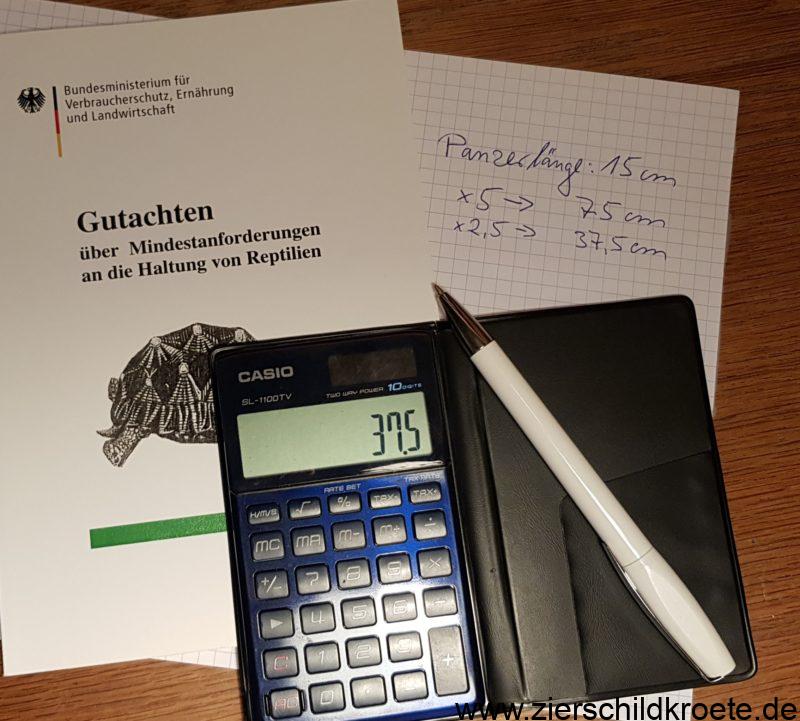 Bundesministerium für
Verbraucherschutz, Ernährung
und Landwirtschaft
Gutachten
über Mindestanforderungen
an die Haltung von Reptilien
Panzerlänge: 15 cm
x5 → 75 cm
x2,5 → 37,5 cm
CASIO
SL-1100TV
TWO WAY POWER 10 DIGITS
37.5
RATE SET
TAX RATE
H/M/S √ % TAX- TAX+
MC MR M- M+ ÷
+/- 7 8 9 ×
▶ 4 5 6 -
C 1 2 3 +
AC 0 .
www.zierschildkroete.de